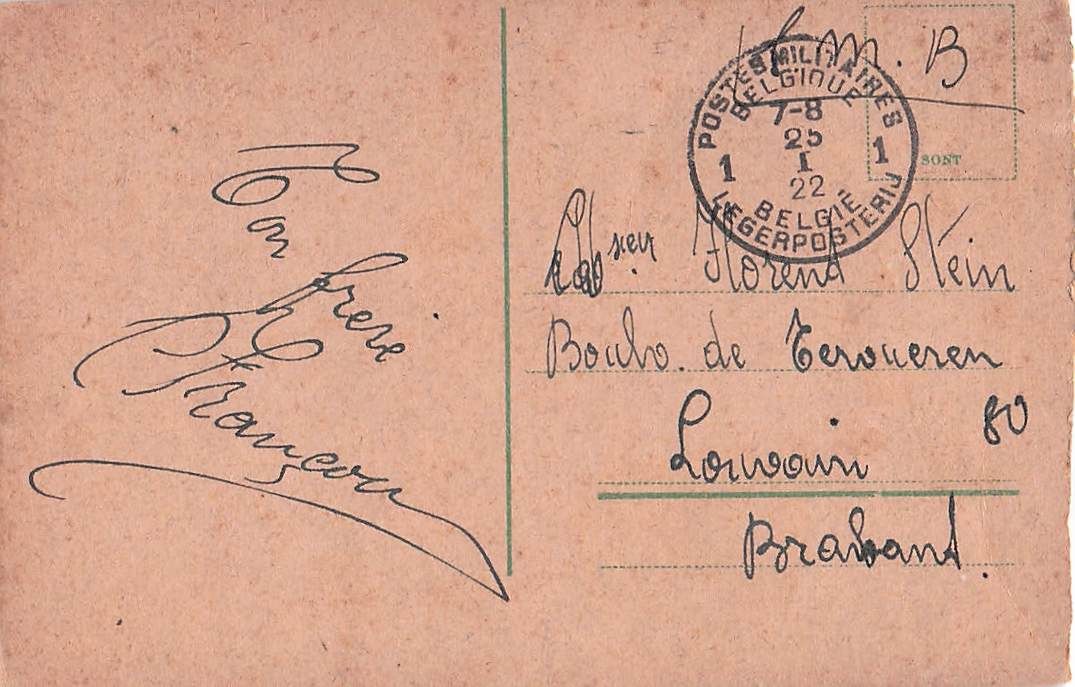 Ton frère
François
S. M. B
POSTES MILITAIRES
BELGIQUE
7-8
25
I
22
1 1
BELGIË
LEGERPOSTERIJ
SONT
Florent Stein
de Tervueren
80
Louvain
Brabant.